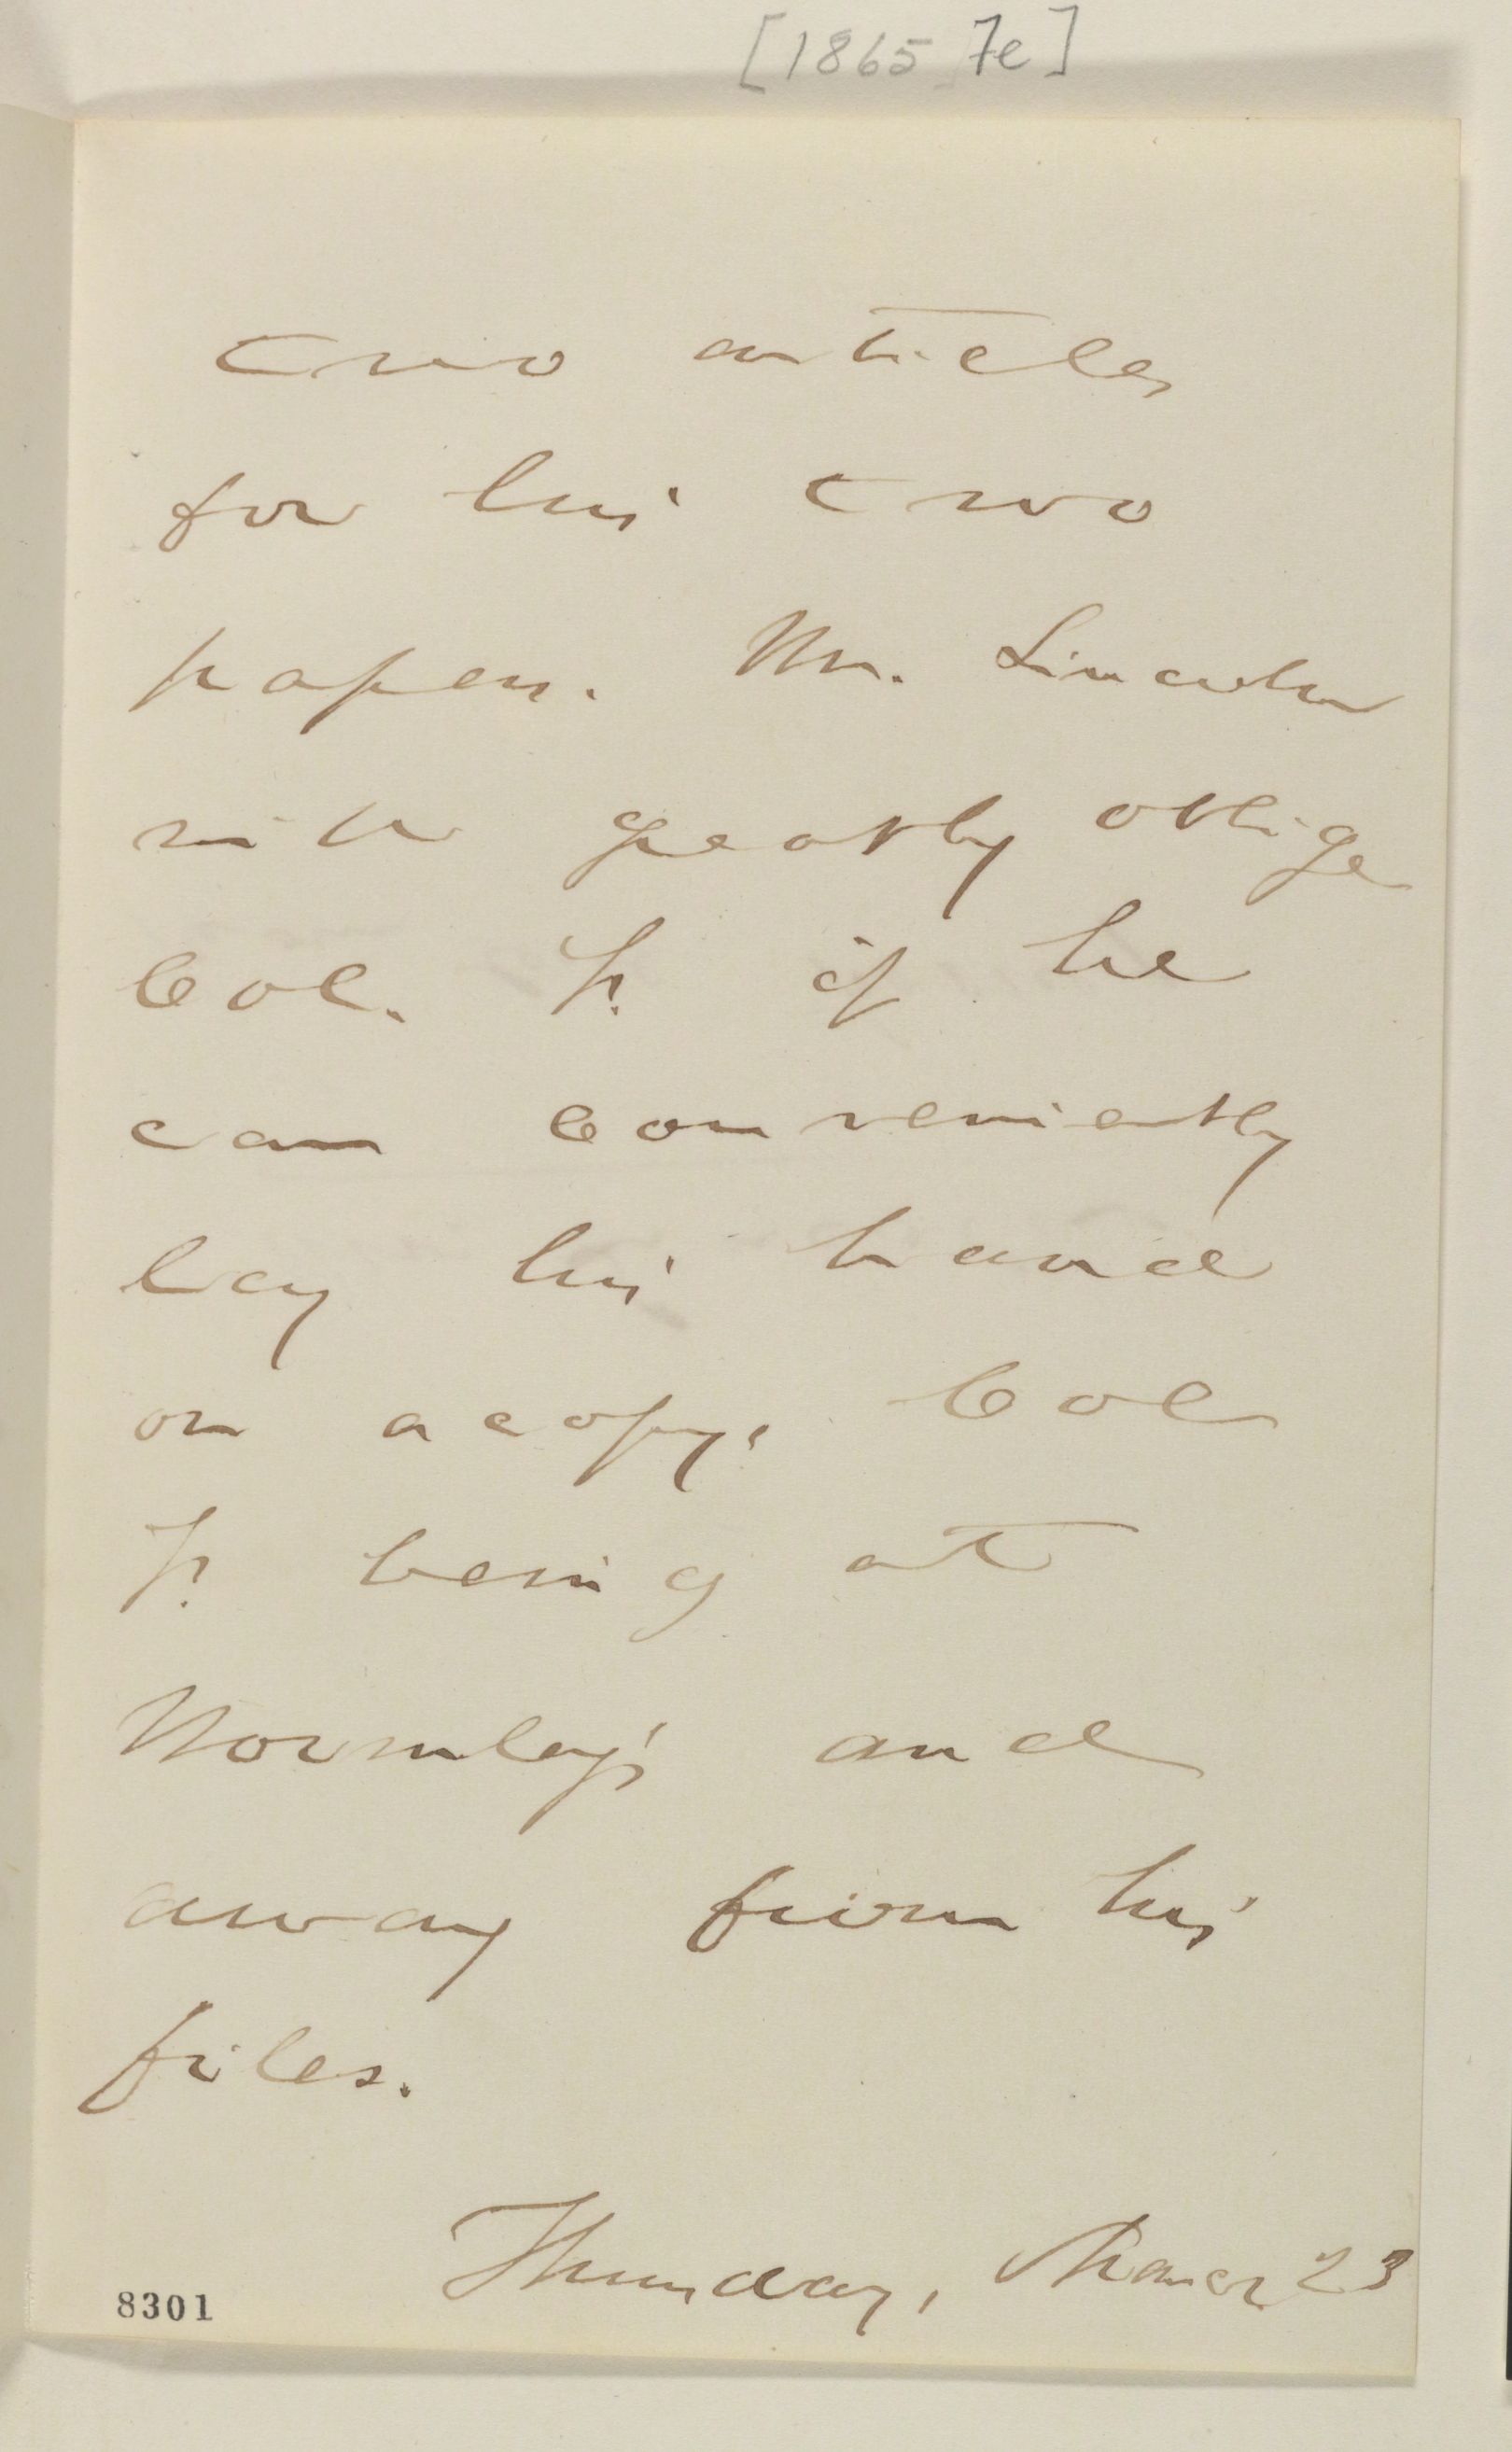 [1865 Fe]
two articles
for his two
papers. Mr. Lincoln
will greatly oblige
Col. F. if he
can conveniently
lay his hand
on a copy, Col
F. being at
Wormley's and
away from his
files.
Thursday, March 23
8301